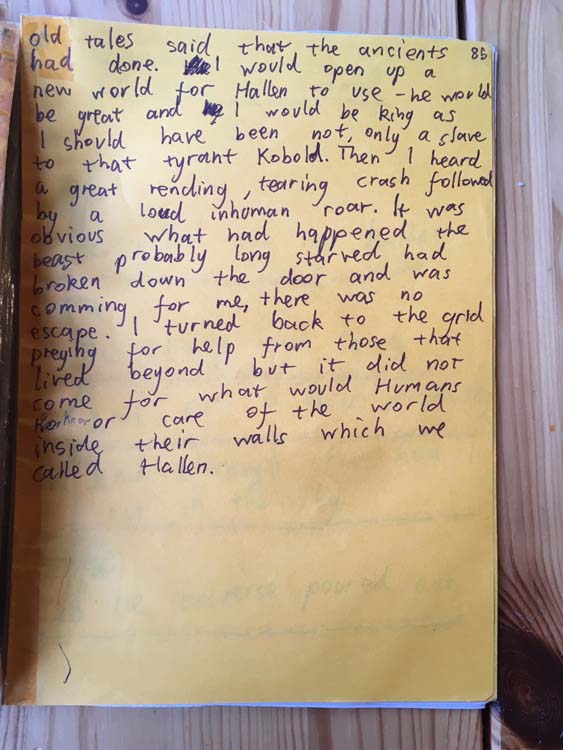 old tales said that the ancients 86
had done. I would open up a
new world for Hallen to use - he would
be great and I would be king as
I should have been not, only a slave
to that tyrant Kobold. Then I heard
a great rending, tearing crash followed
by a loud inhuman roar. It was
obvious what had happened the
beast probably long starved had
broken down the door and was
comming for me, there was no
escape. I turned back to the grid
preying for help from those that
lived beyond but it did not
come for what would Humans
know or care of the world
inside their walls which we
called Hallen.